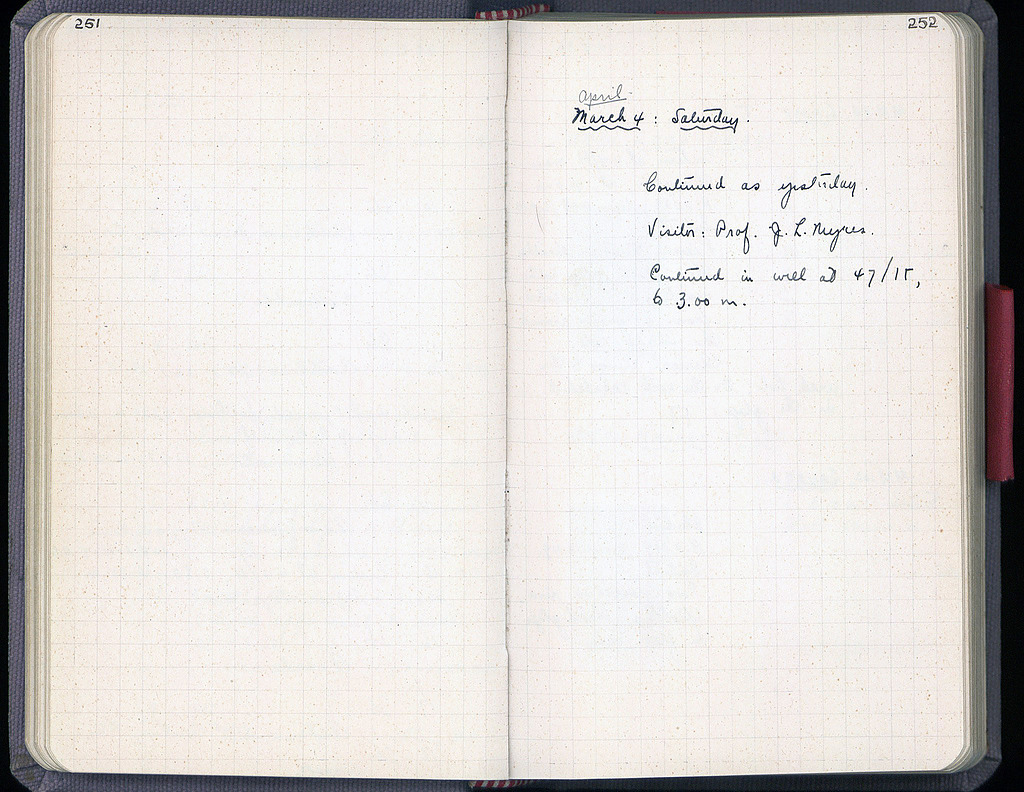 251
252
April
March 4 : Saturday.
Continued as yesterday.
Visitor: Prof. J. L. Myres.
Continued in well at 47/ΙΓ,
to 3.00 m.